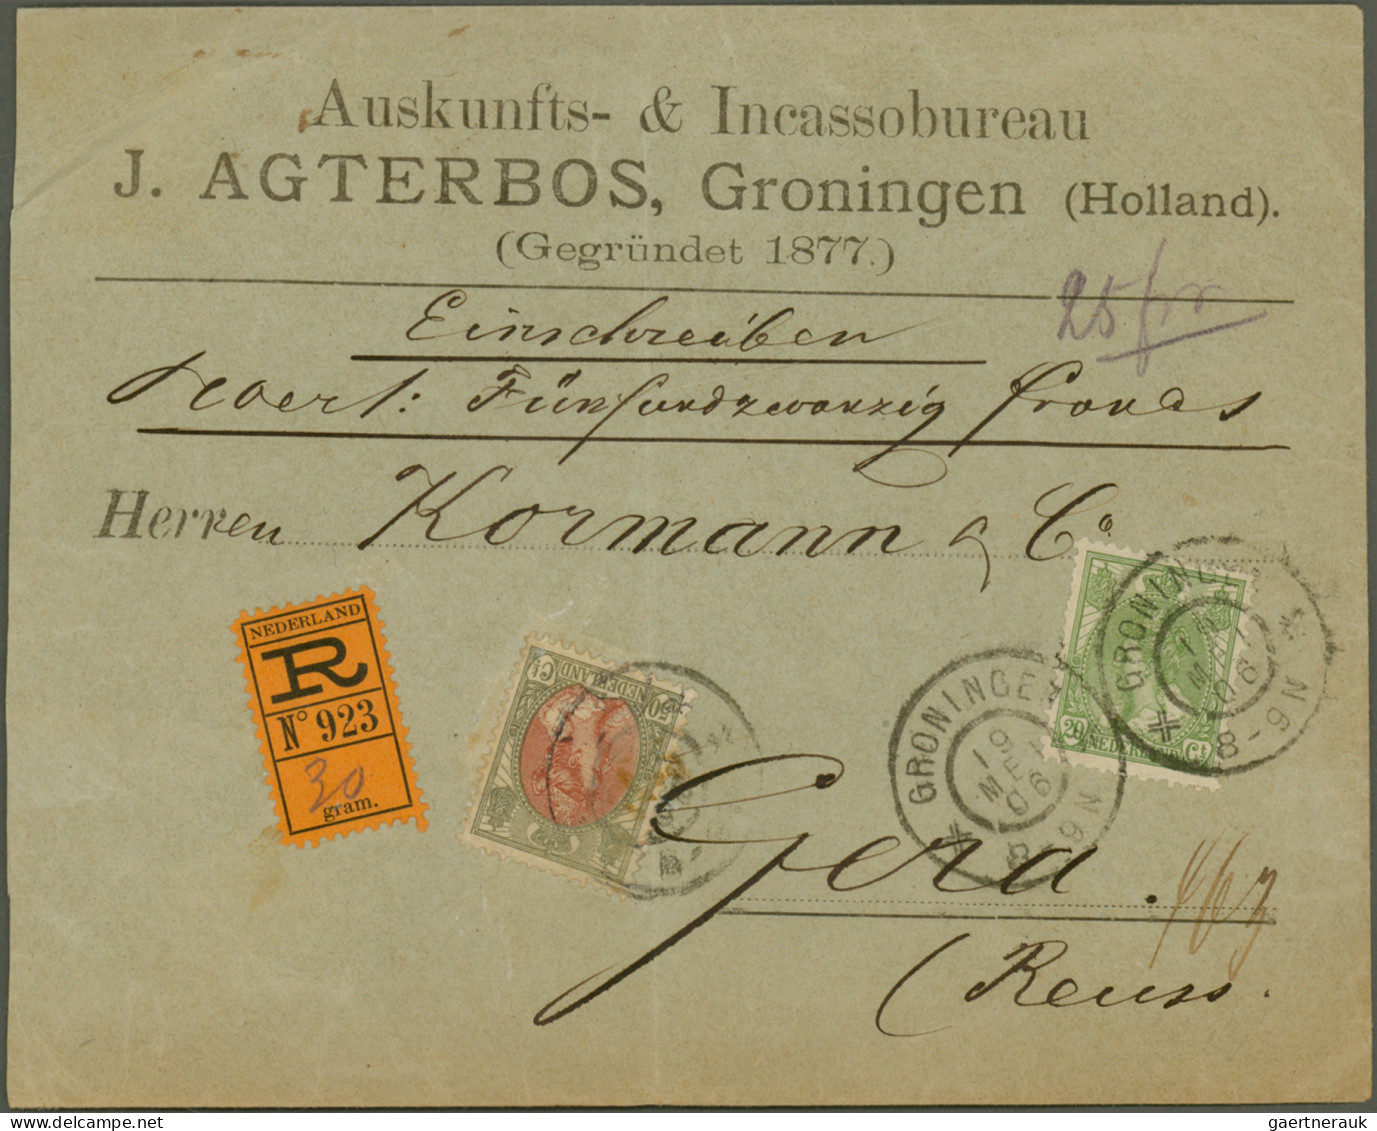 Auskunfts- & Incassobureau
J. AGTERBOS, Groningen (Holland).
(Gegründet 1877.)
25 frs
Einschreiben
Wert: Fünfundzwanzig francs
Herren Kormann & Co
NEDERLAND
R
No 923
30
gram.
50 Ct
NEDERLAND
GRONINGEN
19
MEI
06
8-9N
20 NEDERLAND Ct
GRONINGEN
19
MEI
06
8-9N
Gera.
(Reuss.
gaertnerauk